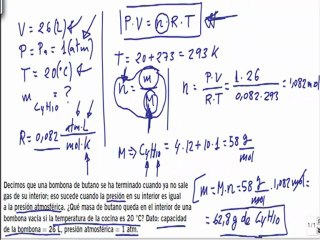 V = 26 (L)
P = Pa = 1 (atm)
T = 20 (°C)
m C4H10 = ?
R = 0,082 atm·L / mol·K
P·V = n·R·T
T = 20 + 273 = 293 K
n = m / M
n = P·V / R·T = 1·26 / 0,082·293 = 1,082 mol
M ⇒ C4H10 = 4·12 + 10·1 = 58 g/mol
m = M·n = 58 g/mol · 1,082 mol =
= 62,8 g de C4H10
Decimos que una bombona de butano se ha terminado cuando ya no sale
gas de su interior; eso sucede cuando la presión en su interior es igual
a la presión atmosférica. ¿Qué masa de butano queda en el interior de una
bombona vacía si la temperatura de la cocina es 20 °C? Dato: capacidad
de la bombona = 26 L, presión atmosférica = 1 atm.
1/1